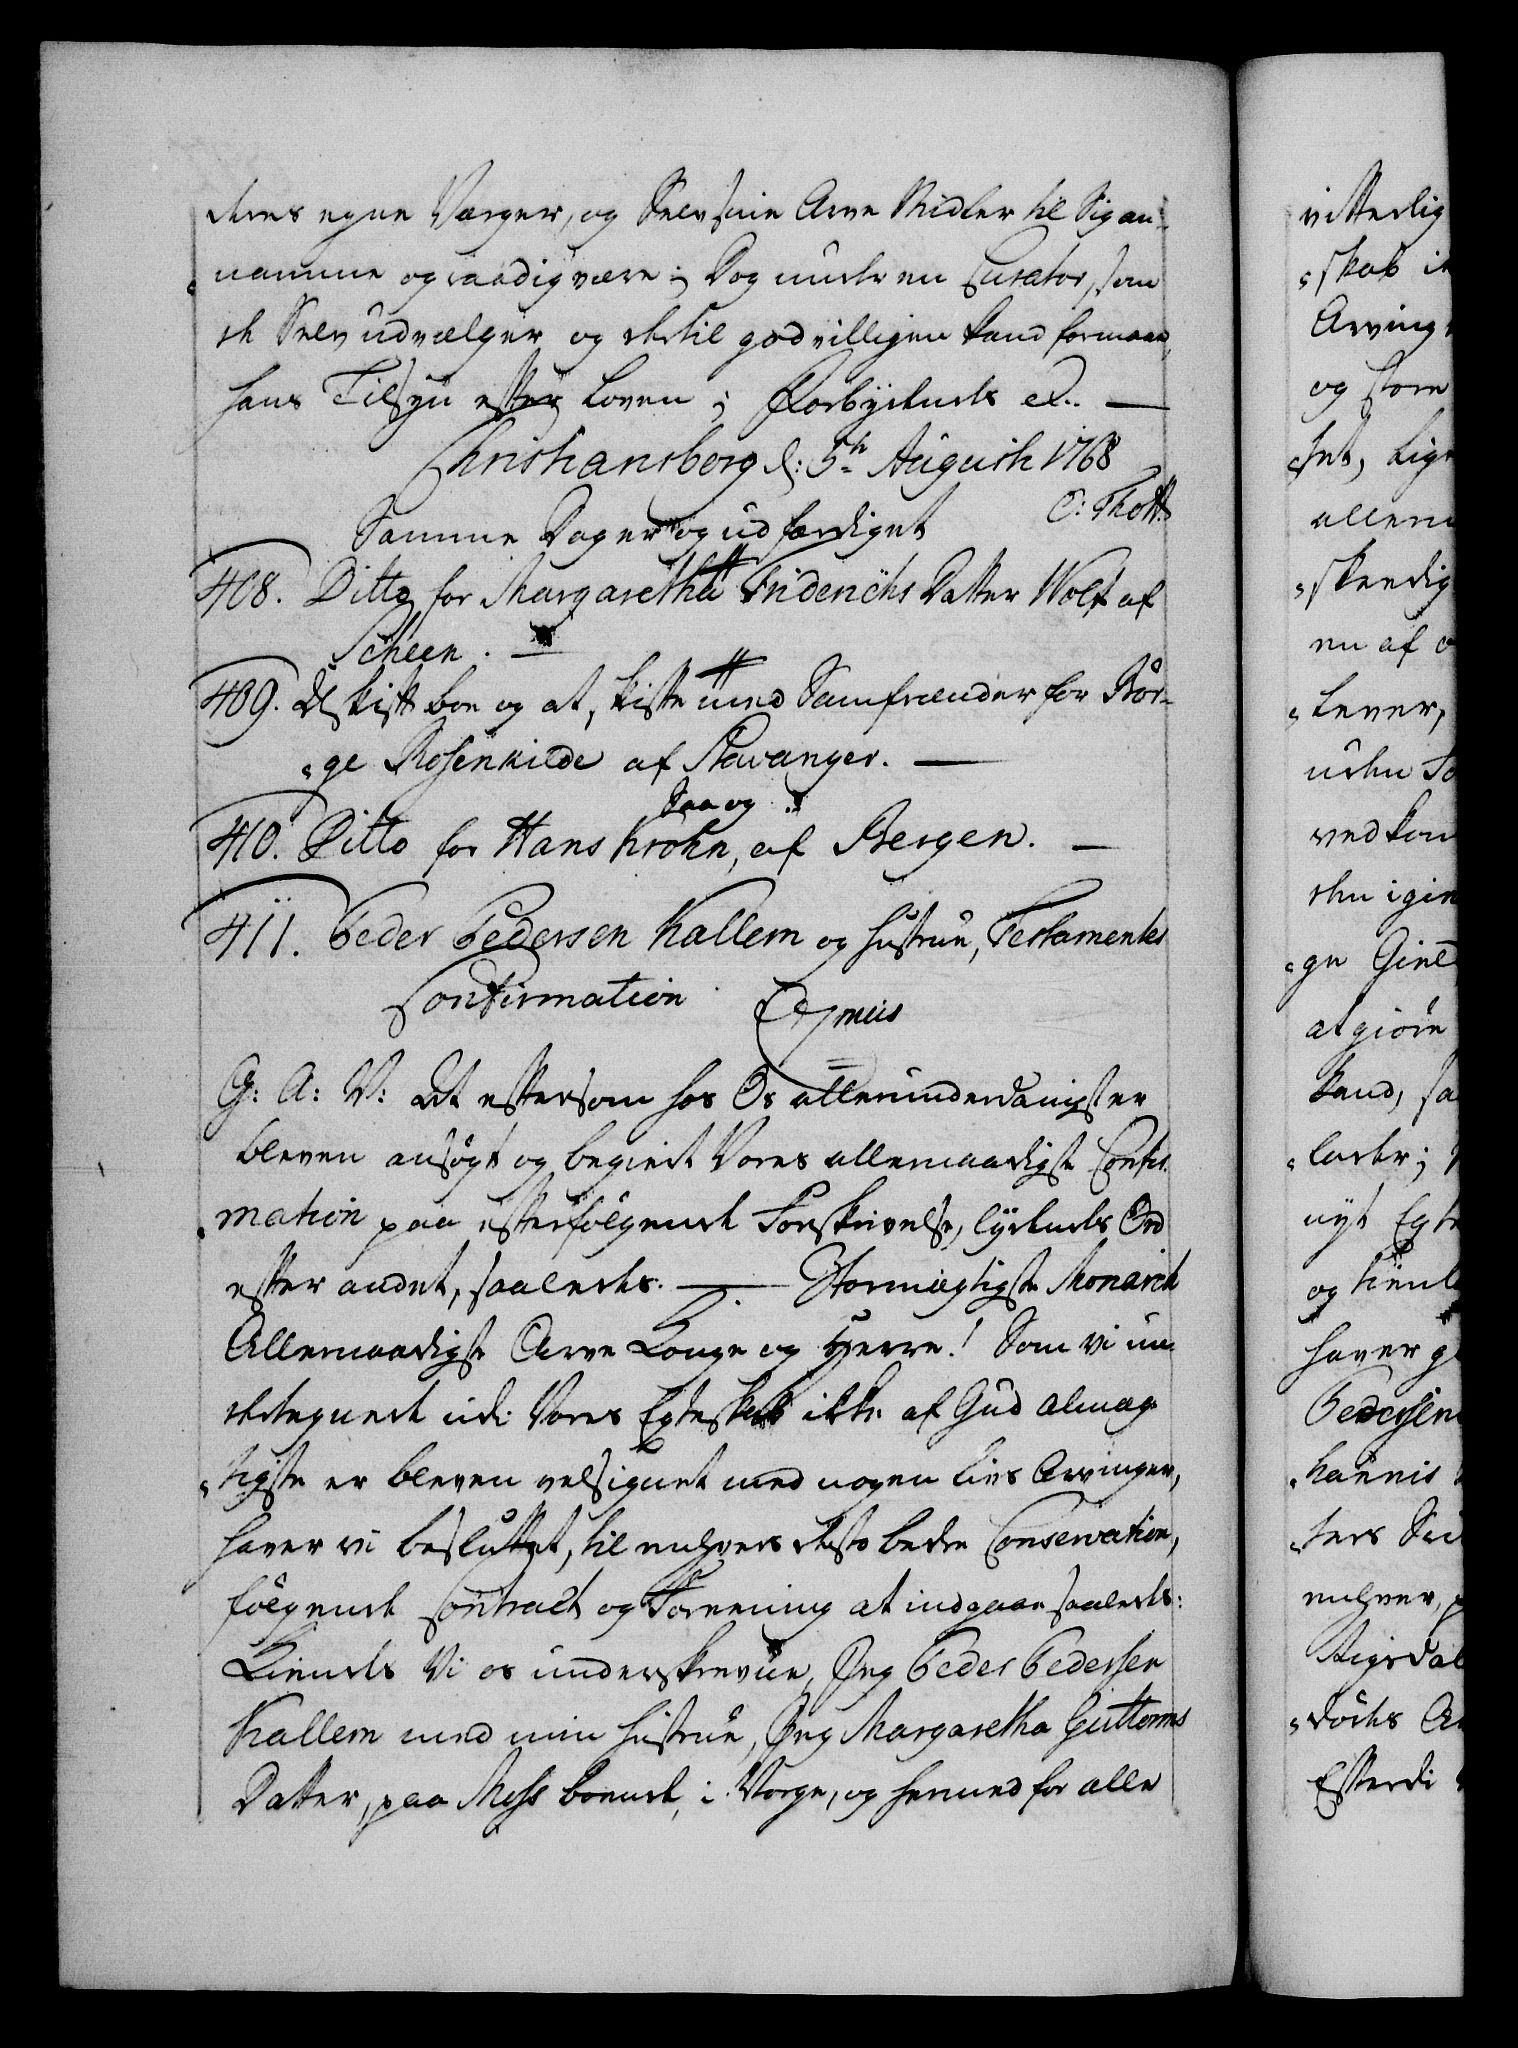 deres egne Værger, og Selv sine Arve Midler til Sig an-
namme og raadig være; Dog under en Curator, som
de Selv udvælger og dertil godvilligen kand formaae,
hans Tilsyn efter Loven; Forbydendes &c. —
Christiansborg d: 5te Augusti 1768
C: Thott.
Samme Dag er og udfærdiget
408. Ditto for Margaretha Friderichs Datter Wolf af
Scheen. —
409. At skifte boe og at skifte med Samfrænder for Bör-
ge Rosenkilde af Stavanger. —
Saa og
410. Ditto for Hans Krohn, af Bergen. —
411. Peder Pedersen Kallem og Hustrue, Testamentes
Confirmation.
G: A: V: At eftersom hos Os allerunderdanigst er
bleven ansögt og begiert Vores allernaadigste Confir-
mation paa efterfölgende Forskrivelse, lydendes Ord
efter andet, saaledes: — Stormægtigste Monarch
Allernaadigste Arve Konge og Herre! Som vi un-
dertegnede udi Vores Egteskab ikke af Gud almæg-
tigste er bleven velsignet med nogen Livs Arvinger,
haver vi besluttet, til enhvers desto bedre Conservation,
fölgende Contract og Forening at indgaae saaledes:
Kiendes Vi os underskrevne, Jeg Peder Pedersen
Kallem med min Hustrue, Jeg Margaretha Guttorms
Datter, paa Moss boende, i Norge, og hermed for alle
vitterlig
skab i
Arving
og store
het, lige
allern
skendig
en af
Lever,
uden
vedkom
den igien
ge
at giöre
kand, sa
lader;
nyt Egte
og
haver g
Pedersen
hannis
ters
enhver,
döds A
Efterdi